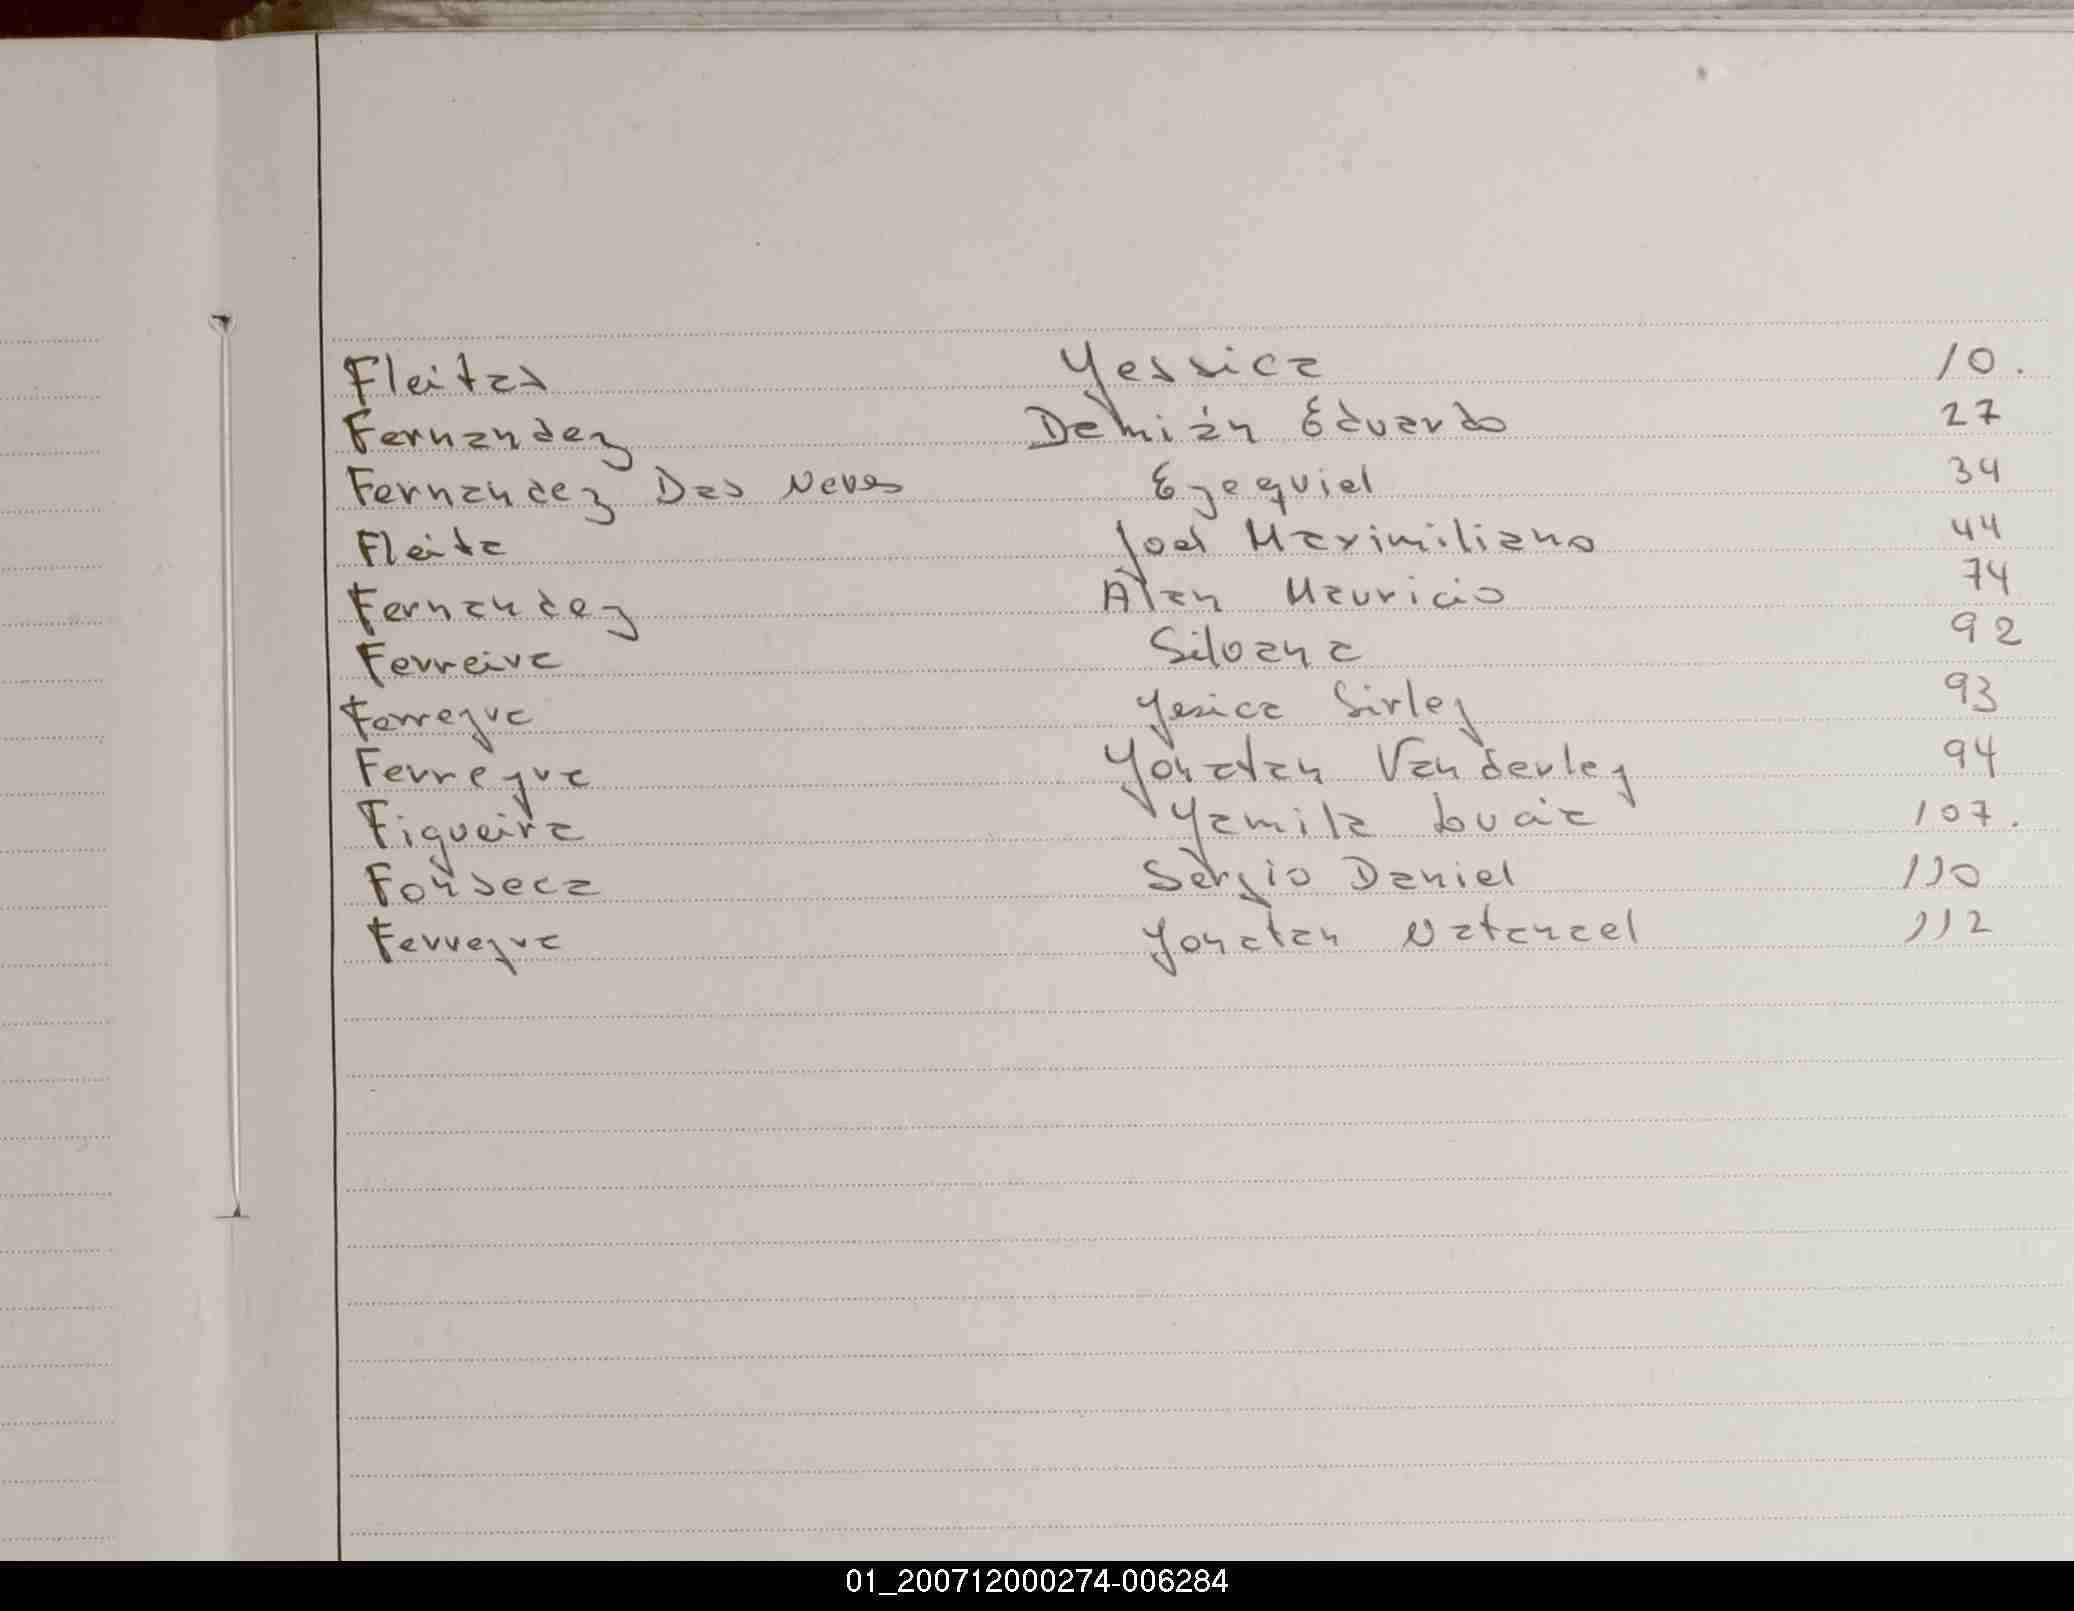 Fleitas Yessica 10.
Fernandez Demián Eduardo 27
Fernandez Das Neves Ezequiel 34
Fleita Joel Maximiliano 44
Fernandez Alan Mauricio 74
Ferreira Siloana 92
Ferreyra Yesica Sirley 93
Ferreyra Yonatan Vanderley 94
Figueira Yamila Lucía 107.
Fonseca Sergio Daniel 110
Ferreyra Yonatan Natanael 112
01_200712000274-006284